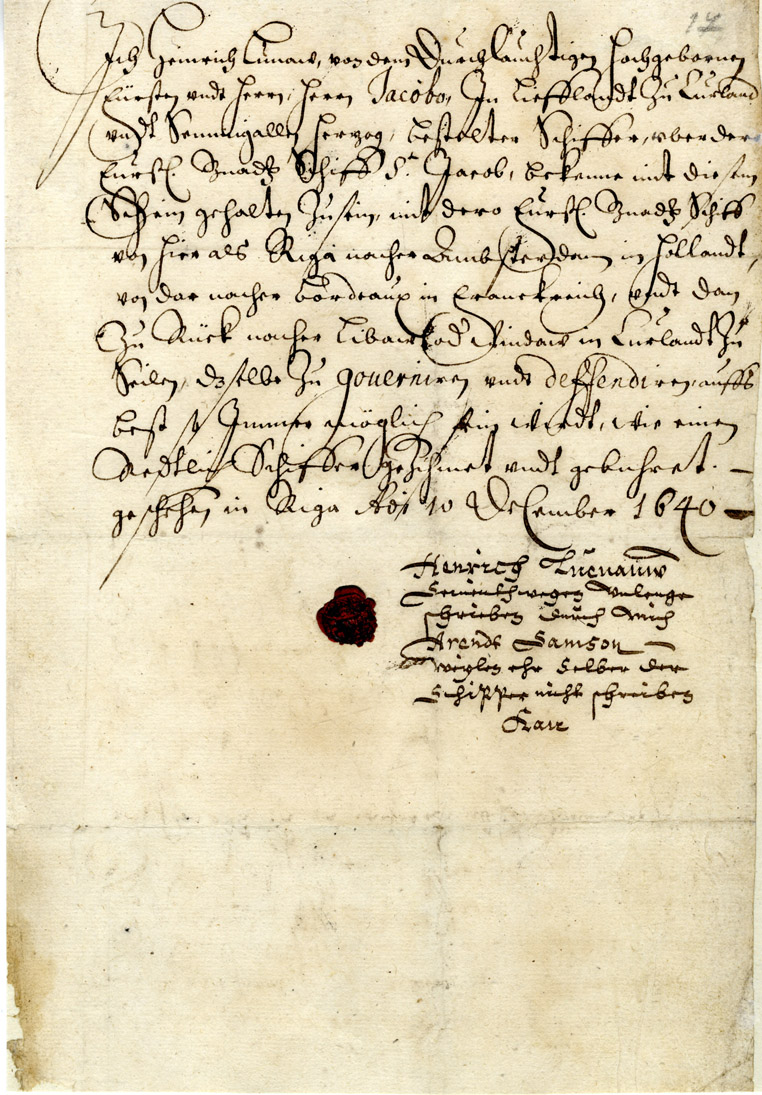 14
Ich Heinrich Lunaw, von dem Durchlauchtigen hochgebornen
Fürsten undt Herrn, Herrn Jacobo, In Liefflandt Zu Curland
undt Semmigallen Herzog, bestelter Schiffer, uber dero
Fürstl. Gnad. Schiff St. Jacob, bekenne mit diesem
Schein gehalten Zu sein, mit dero Fürstl. Gnad. Schiff
von hier als Riga nacher Ambsterdam in Hollandt,
von dar nacher Bordeaux in Franckreich, undt dan
Zu Rück nacher Libaw od. Windaw in Curlandt Zu
Seilen, daselbe Zu gouverniren undt deffendiren, auffs
best so Immer möglich sein wirdt, wie einen
Redtlich Schiffer gezihmet undt gebuhret.
geschehen in Riga 10 December 1640
Henrich Luenauw
schrieben durch mich
Arendt Samson
weylen ehr Selber der
Schipper nicht schreiben
Kan